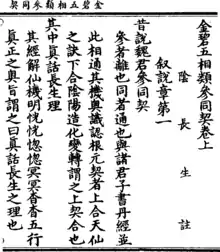 金碧五相類參同契
金碧五相類參同契卷上
陰長生註
叙説章第一
昔説魏君參同契
參者離也同者通也與諸君子書丹經並
此相通其機與識認根元契者上合天仙
之訣下合陰陽造化變轉謂之上契合也
其中眞話長生之理
其經解仙機明恍恍惚惚冥冥杳杳五行
眞正之奥旨謂之曰眞話長生之理也